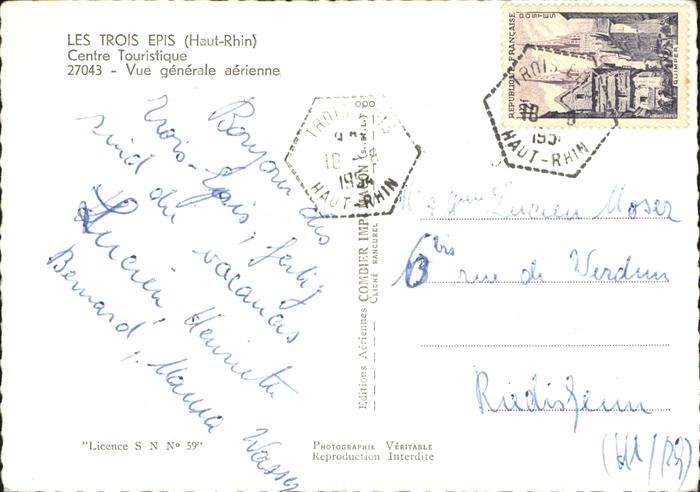 LES TROIS EPIS (Haut-Rhin)
Centre Touristique
27043 - Vue générale aérienne
Bonjour des
Trois-Epis, fertig
sind die vacances
Lucien Henriette
Bernard, Mama Wasser
"Licence S N Nº 59"
Editions Aériennes COMBIER IMP. MACON
CLICHÉ RANCUREL
PHOTOGRAPHIE VÉRITABLE
Reproduction Interdite
REPUBLIQUE FRANÇAISE
POSTES
QUIMPER
TROIS-EPIS
18
195
HAUT-RHIN
TROIS
18
HAUT-RHIN
Lucien Moser
6 bis rue de Verdun
Riedisheim
(Ht/Rh)